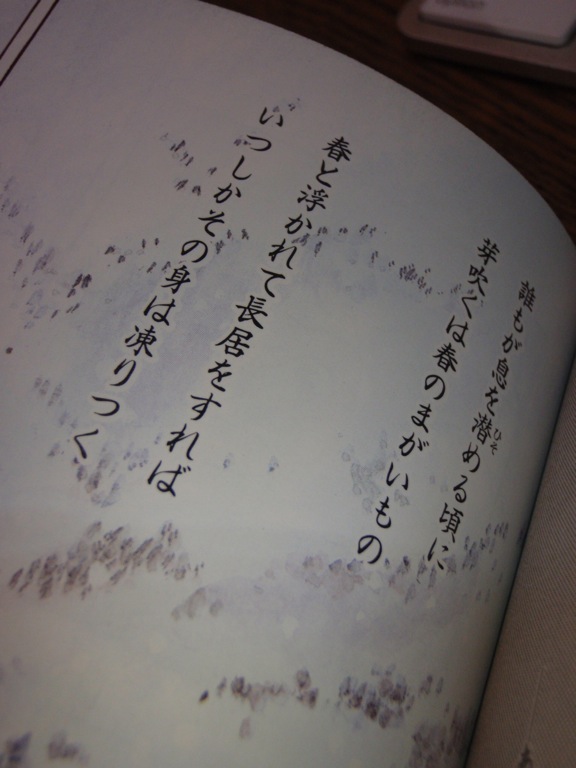 誰もが息を潜める頃に
ひそ
芽吹くは春のまがいもの
春と浮かれて長居をすれば
いつしかその身は凍りつく